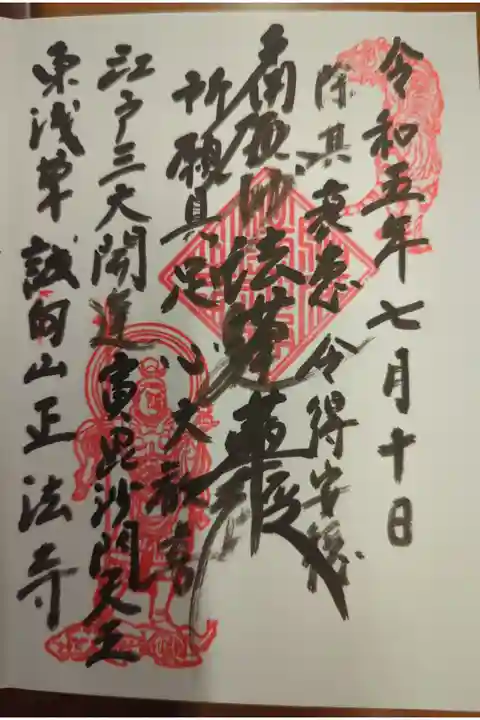 令和五年七月十日
除其衰患令得安穏
南無妙法蓮華経
所願具足心大歓喜
江戸三大開運毘沙門天王
東浅草 誠向山正法寺